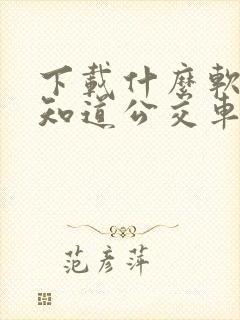 下載什麼軟
知道公交車
范彥萍